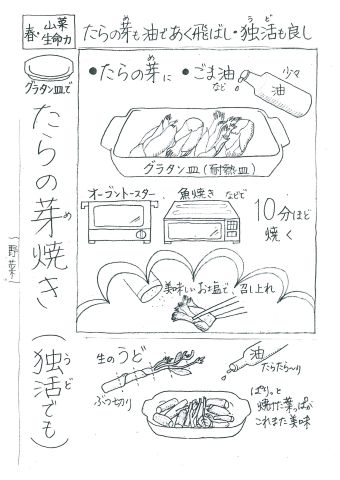 春・山菜
生命力
たらの芽も油であく飛ばし・独活も良し
め
うど
グラタン皿で
たらの芽焼き(独活でも)
め
うど
(野菜)
•たらの芽に •ごま油
など
少々
油
グラタン皿(耐熱皿)
オーブントースター
魚焼き などで
10分ほど
焼く
美味しいお塩で、召し上れ
生のうど
ぶつ切り
油
たらたら〜り
ぱりっと
焼けた葉っぱが
これまた美味